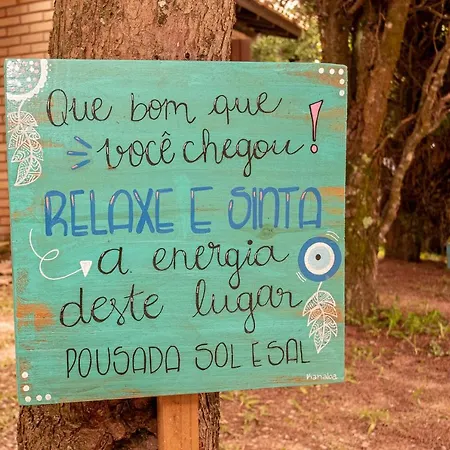 Que bom que
você chegou!
RELAXE E SINTA
a energia
deste lugar
POUSADA SOL E SAL